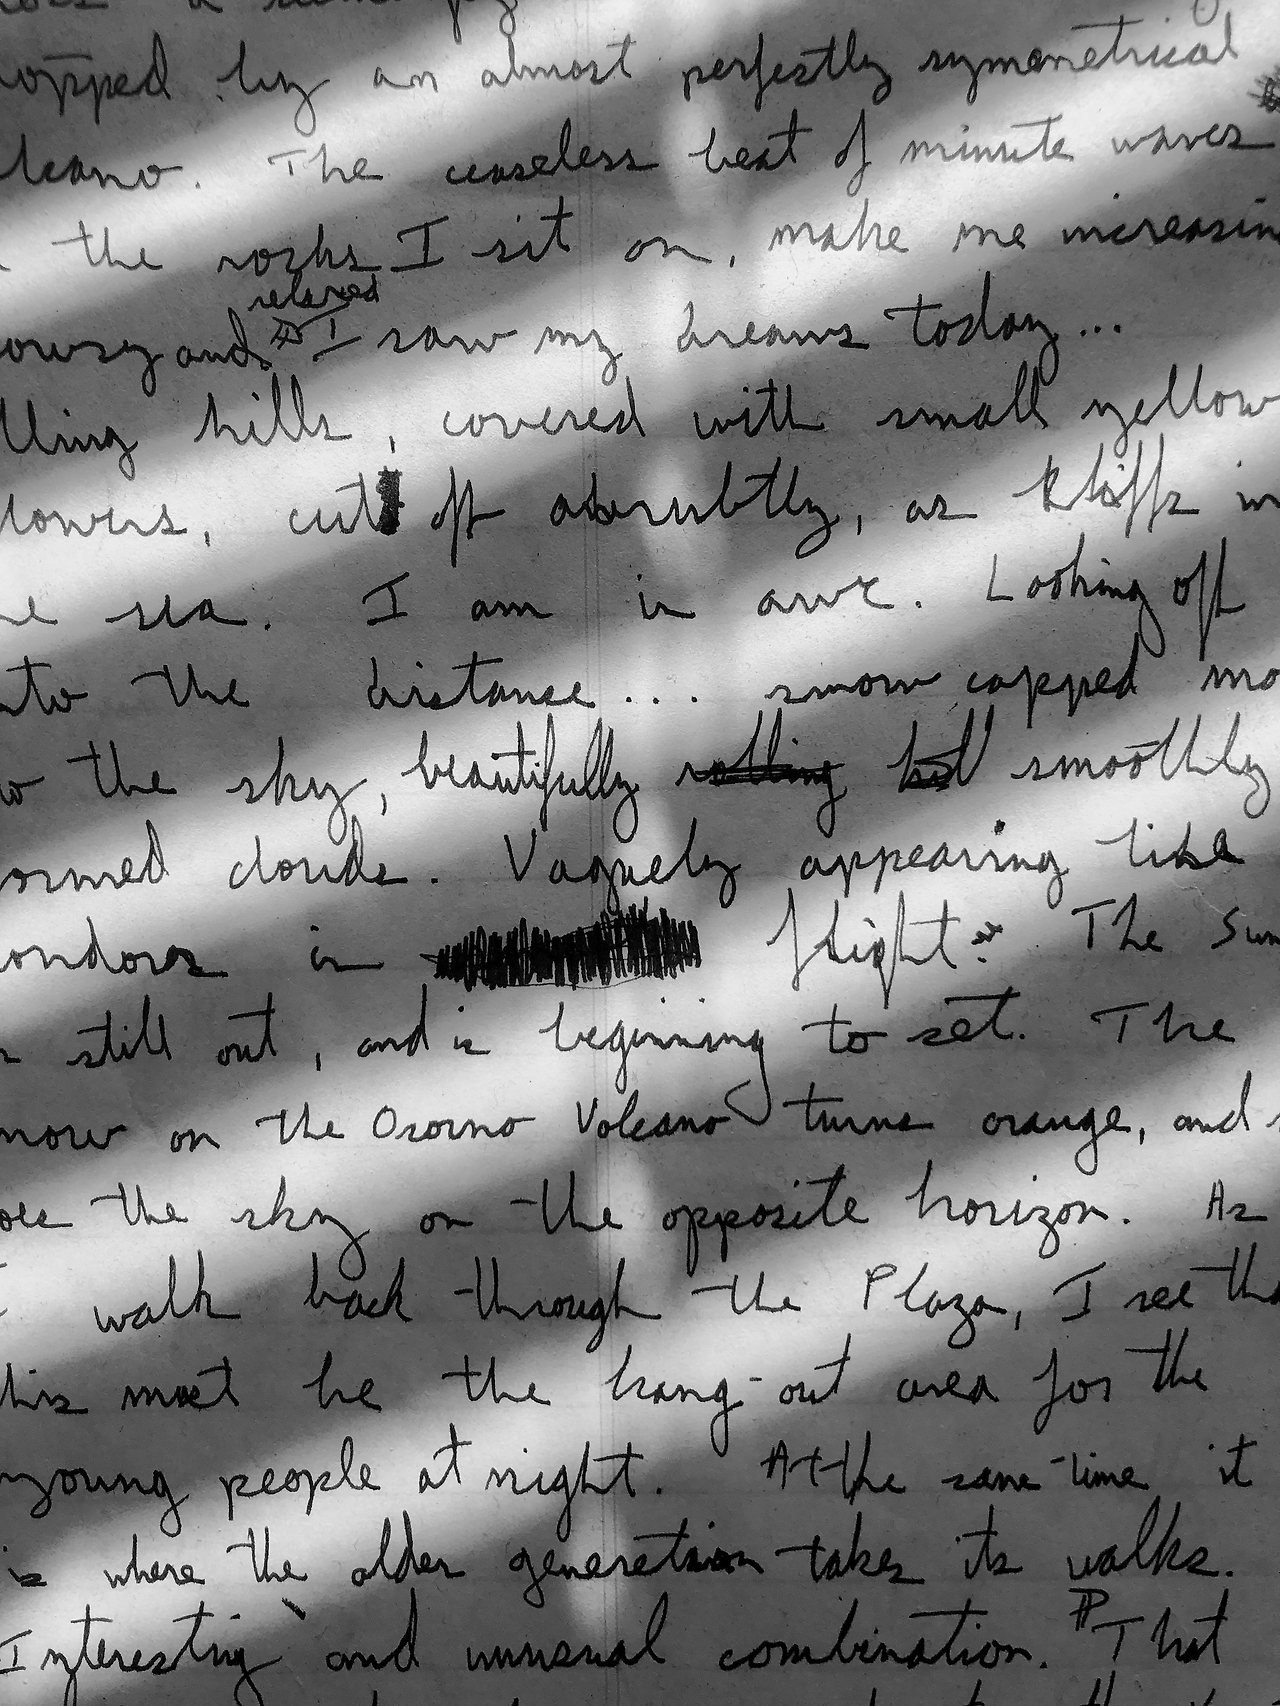 opped by an almost perfectly symmetrical
lcano. The ceaseless beat of minute waves
the rocks I sit on, make me increasin
relaxed
owsy and I saw my dreams today...
lling hills, covered with small yellow
lowers, cut off abrubtly, as kliffs in
he sea. I am in awe. Looking off
nto the distance... snow capped mo
o the sky, beautifully rolling hill smoothly
ormed clouds. Vaguely appearing like
ondors in flight. The Sun
still out, and is beginning to set. The
now on the Osorno Volcano turns orange, and
oes the sky on the opposite horizon. As
I walk back through the Plaza, I see tha
his must be the hang-out area for the
young people at night. At the same-time it
is where the older generation takes its walks.
Interesting and unusual combination. That